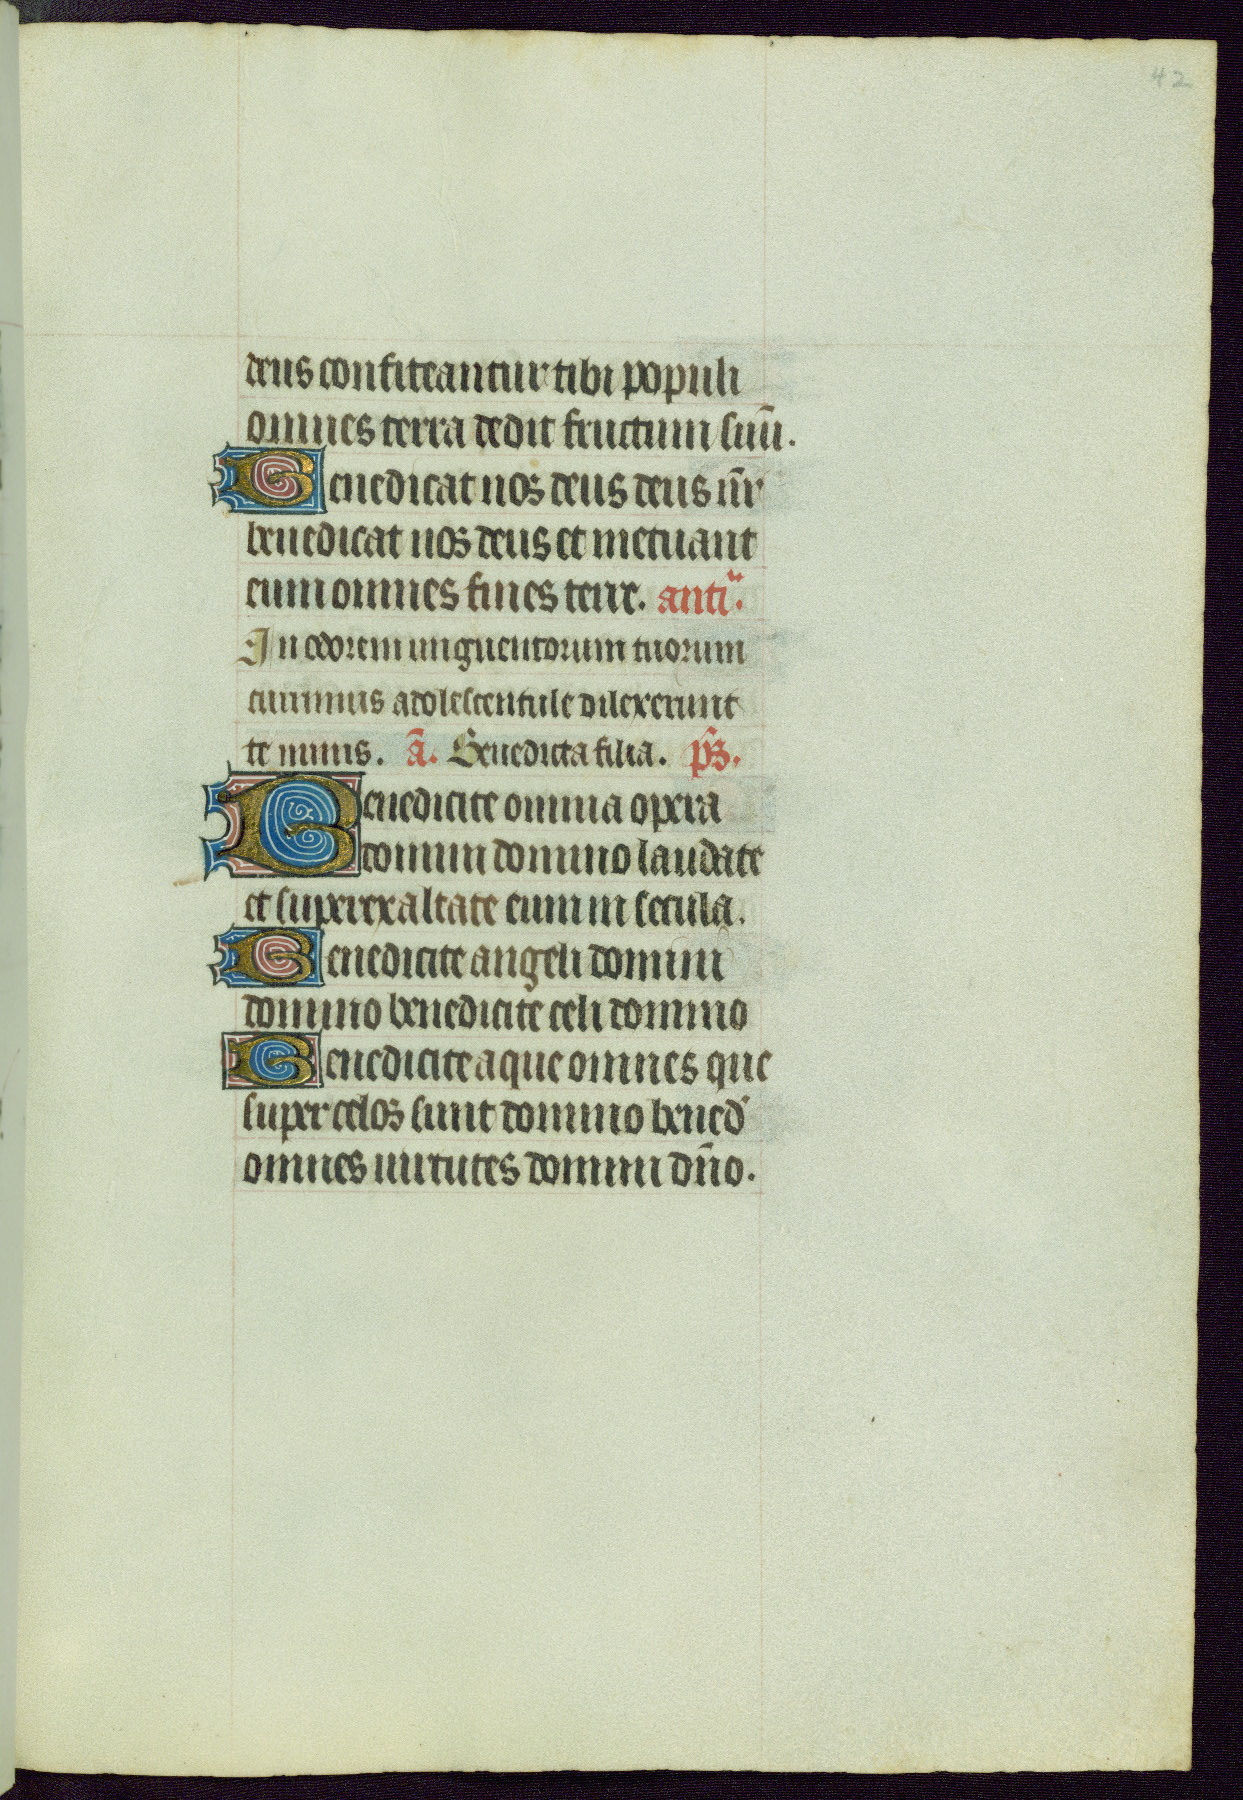 42
deus confiteantur tibi populi
omnes terra dedit fructum suū.
Benedicat nos deus deus nr̄
benedicat nos deus et metuant
eum omnes fines terre. anti.
In odorem unguentorum tuorum
currimus adolescentule dilexerunt
te nimis. ā. Benedicta filia. ps̄.
Benedicite omnia opera
domini domino laudate
et superexaltate eum in secula.
Benedicite angeli domini
domino benedicite celi domino
Benedicite aque omnes que
super celos sunt domino bened'
omnes uirtutes domini dn̄o.